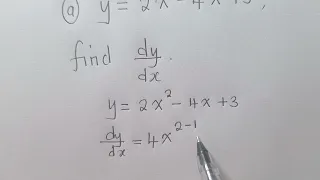 ⓐ y = 2x² - 4x + 3,
find dy/dx.
y = 2x² - 4x + 3
dy/dx = 4x²⁻¹